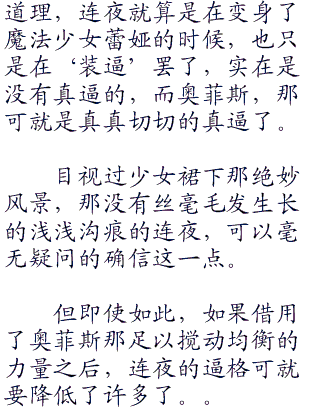 道理，连夜就算是在变身了
魔法少女蕾娅的时候，也只
是在‘装逼’罢了，实在是
没有真逼的，而奥菲斯，那
可就是真真切切的真逼了。
目视过少女裙下那绝妙
风景，那没有丝毫毛发生长
的浅浅沟痕的连夜，可以毫
无疑问的确信这一点。
但即使如此，如果借用
了奥菲斯那足以搅动均衡的
力量之后，连夜的逼格可就
要降低了许多了。。